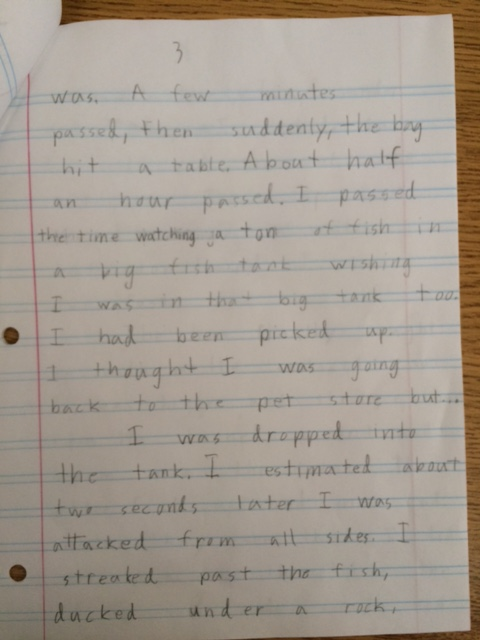 3
was. A few minutes
passed, then suddenly, the bag
hit a table. About half
an hour passed. I passed
the time watching a ton of fish in
a big fish tank wishing
I was in that big tank too.
I had been picked up.
I thought I was going
back to the pet store but...
I was dropped into
the tank. I estimated about
two seconds later I was
attacked from all sides. I
streaked past the fish,
ducked under a rock,